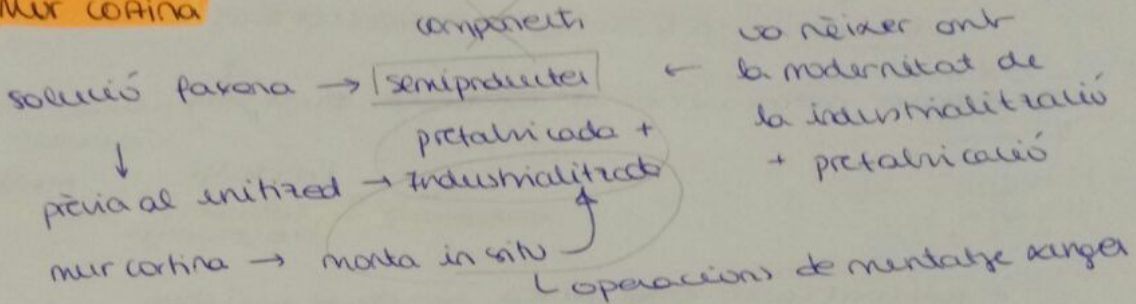 Mur cortina
components
solució façana → semiproductes ← va néixer amb
la modernitat de
prefabricada + la industrialització
↓ + prefabricació
prèvia al unitized → Industrialitzada
mur cortina → monta in situ
operacions de muntatge